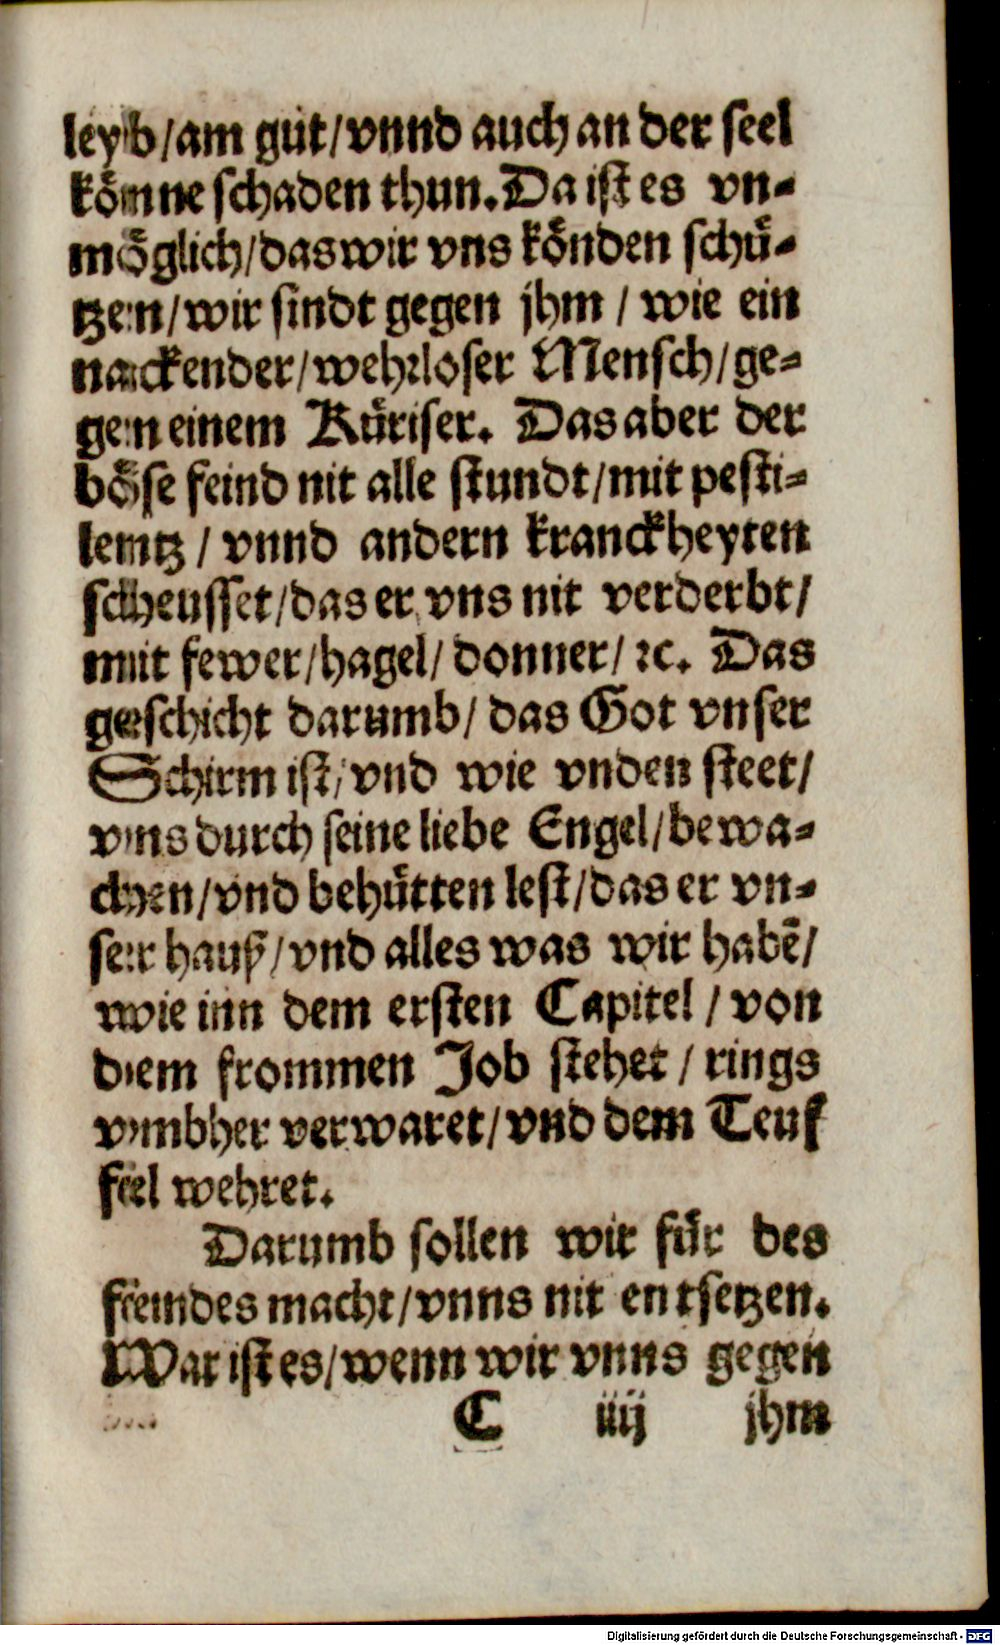 leyb/am gůt/vnnd auch an der seel
könne schaden thun. Da ist es vn⸗
möglich/das wir vns könden schü⸗
tzen/wir sindt gegen jhm / wie ein
nackender/wehrloser Mensch/ge⸗
gen einem Küriser. Das aber der
böse feind nit alle stundt/mit pesti⸗
lentz / vnnd andern kranckheyten
scheusset/das er vns nit verderbt/
mit fewer/hagel/donner/ꝛc. Das
geschicht darumb/ das Got vnser
Schirm ist/vnd wie vnden steet/
vns durch seine liebe Engel/bewa⸗
chen/vnd behütten lest/das er vn⸗
ser hauß/vnd alles was wir habē/
wie inn dem ersten Capitel / von
dem frommen Job stehet / rings
vmbher verwaret/vnd dem Teuf
fel wehret.
Darumb sollen wir für des
feindes macht/vnns nit entsetzen.
War ist es/wenn wir vnns gegen
C iiij jhm
Digitalisierung gefördert durch die Deutsche Forschungsgemeinschaft - DFG